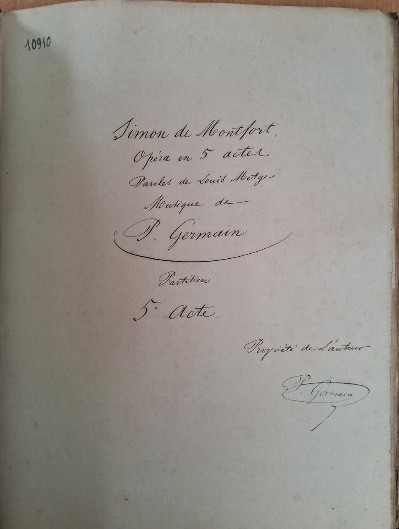 10910
Simon de Montfort.
Opéra en 5 actes
Paroles de Louis Metge
Musique de
P. Germain
Partition
5e Acte
Propriété de L'auteur
P. Germain